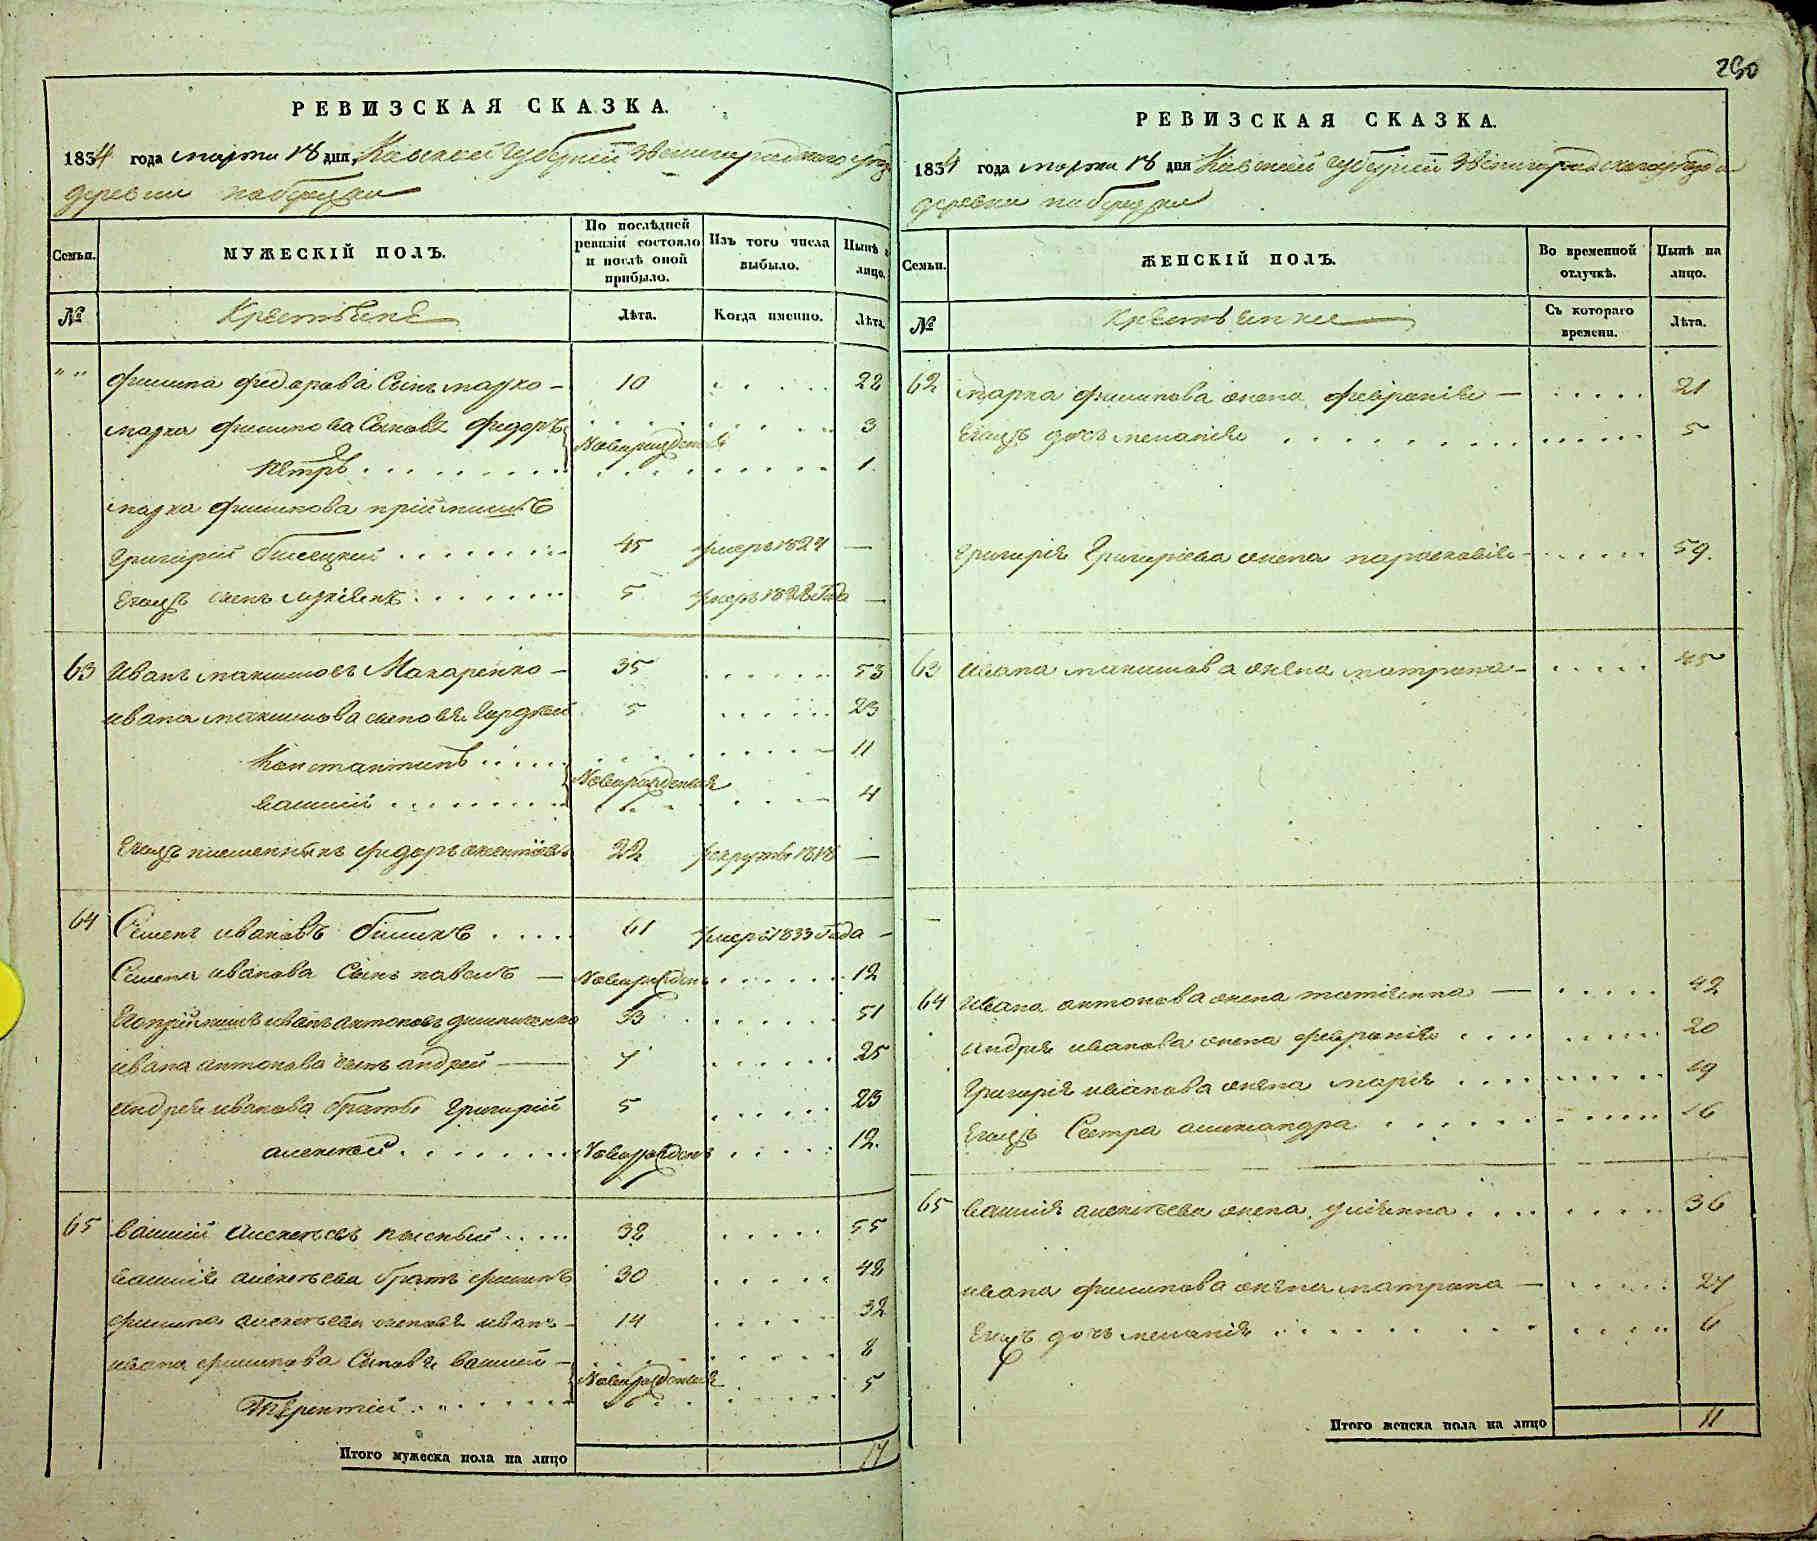 290
РЕВИЗСКАЯ СКАЗКА.
1834 года марта 18 дня, Киевской Губернии Звенигородского уезда
деревни
Семьи.
МУЖЕСКІЙ ПОЛЪ.
По послѣдней ревизіи состояло и послѣ оной прибыло.
Изъ того числа выбыло.
Нынѣ на лицо.
№
Крестьяне
Лѣта.
Когда именно.
Лѣта.
" " Филипа Федорова Сынъ марко — 10 22
марка филипова Сыновя Федоръ 3
Новорожденныя
Петръ 1
марка филипова пріймышъ
Григорій 45 умеръ 1824 —
Егожъ сынъ 5 умеръ 1828 года —
63 Иванъ максимовъ Макаренко — 35 53
ивана максимова сыновя Гордѣй 5 23
Константинъ 11
Новорожденныя
василий 4
Егожъ племянникъ федоръ 22 рекрутъ 1818 —
64 Семенъ ивановъ 61 умеръ 1833 года —
Семена иванова Сынъ павелъ — Новорожден 12
Егопріймышъ иванъ антоновъ 33 51
ивана антонова сынъ андрей 7 25
андрея иванова братья Григорій 5 23
алексѣй Новорожден 12.
65 василий Алексеевъ 32 55
василия алексеева братъ филипъ 30 48
филипа алексеева сыновя иванъ — 14 32
ивана филипова Сыновя василий — 8
Новорожденныя
Терентій 5
Итого мужеска пола на лицо 17
РЕВИЗСКАЯ СКАЗКА.
1834 года марта 18 дня Киевской Губернии Звенигородского уезда
деревни
Семьи.
ЖЕНСКІЙ ПОЛЪ.
Во временной отлучкѣ.
Нынѣ на лицо.
№
Крестьянки
Съ котораго времени.
Лѣта.
62 марка филипова жена февронія — 21
Егожъ дочь меланія 5
Григорія Григоріева жена параскавія 59.
63 ивана максимова жена матрона — 45
64 ивана антонова жена татіянна — 42
андрея иванова жена февронія 20
Григорія иванова жена марія 19
Егожъ Сестра александра 16
65 василия алексеева жена уліянна 36
ивана филипова жена матрона — 27
Егожъ дочь меланія 6
Итого женска пола на лицо 11